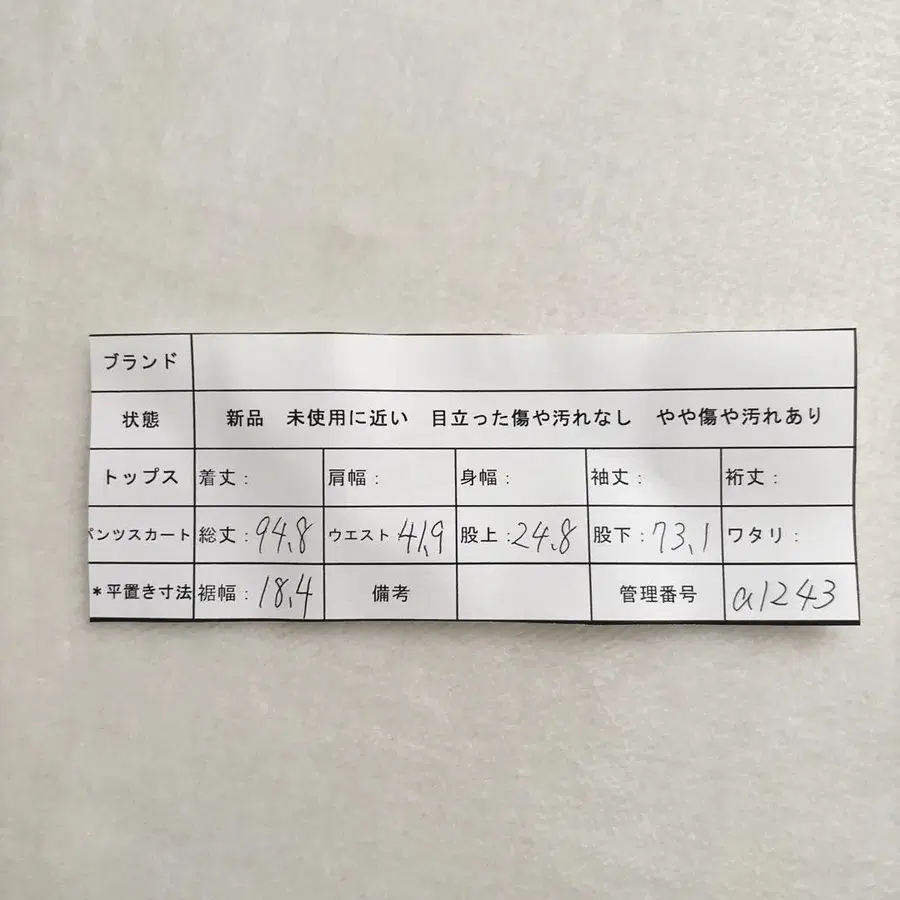 ブランド
状態 新品 未使用に近い 目立った傷や汚れなし やや傷や汚れあり
トップス 着丈: 肩幅: 身幅: 袖丈: 裄丈:
パンツスカート 総丈:94.8 ウエスト 41.9 股上:24.8 股下:73.1 ワタリ:
*平置き寸法 裾幅:18.4 備考 管理番号 a1243